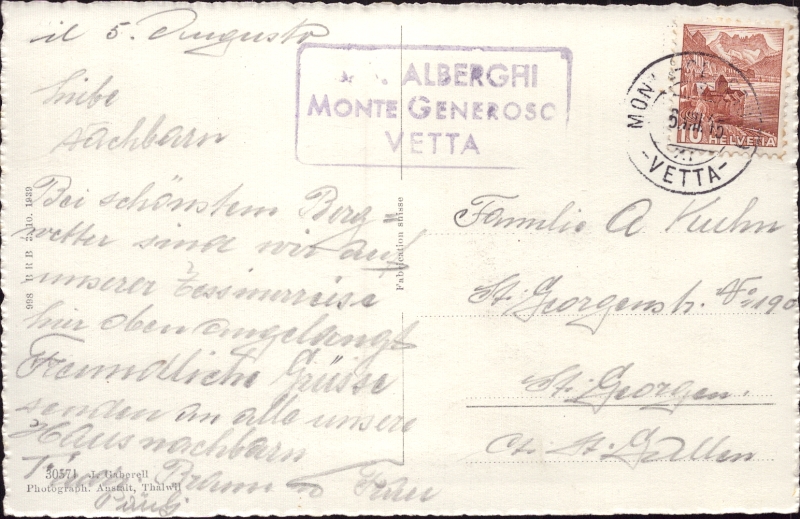 il 5. Augusto
ALBERGHI
MONTE GENEROSO
VETTA
liebe
Nachbarn
Bei schönstem Berg=
wetter sind wir auf
unserer Tessinerreise
hier oben angelangt
Freundliche Grüsse
senden an alle unsere
Hausnachbarn
Braun u Frau
998 B R B 3. 10. 1939
30571 J. Gaberell
Photograph. Anstalt, Thalwil
Fabrication suisse
10 HELVETIA
MON
-VETTA-
Familie A Kuhn
St. Georgenstr. No 190
St. Georgen.
Ct. St. Gallen